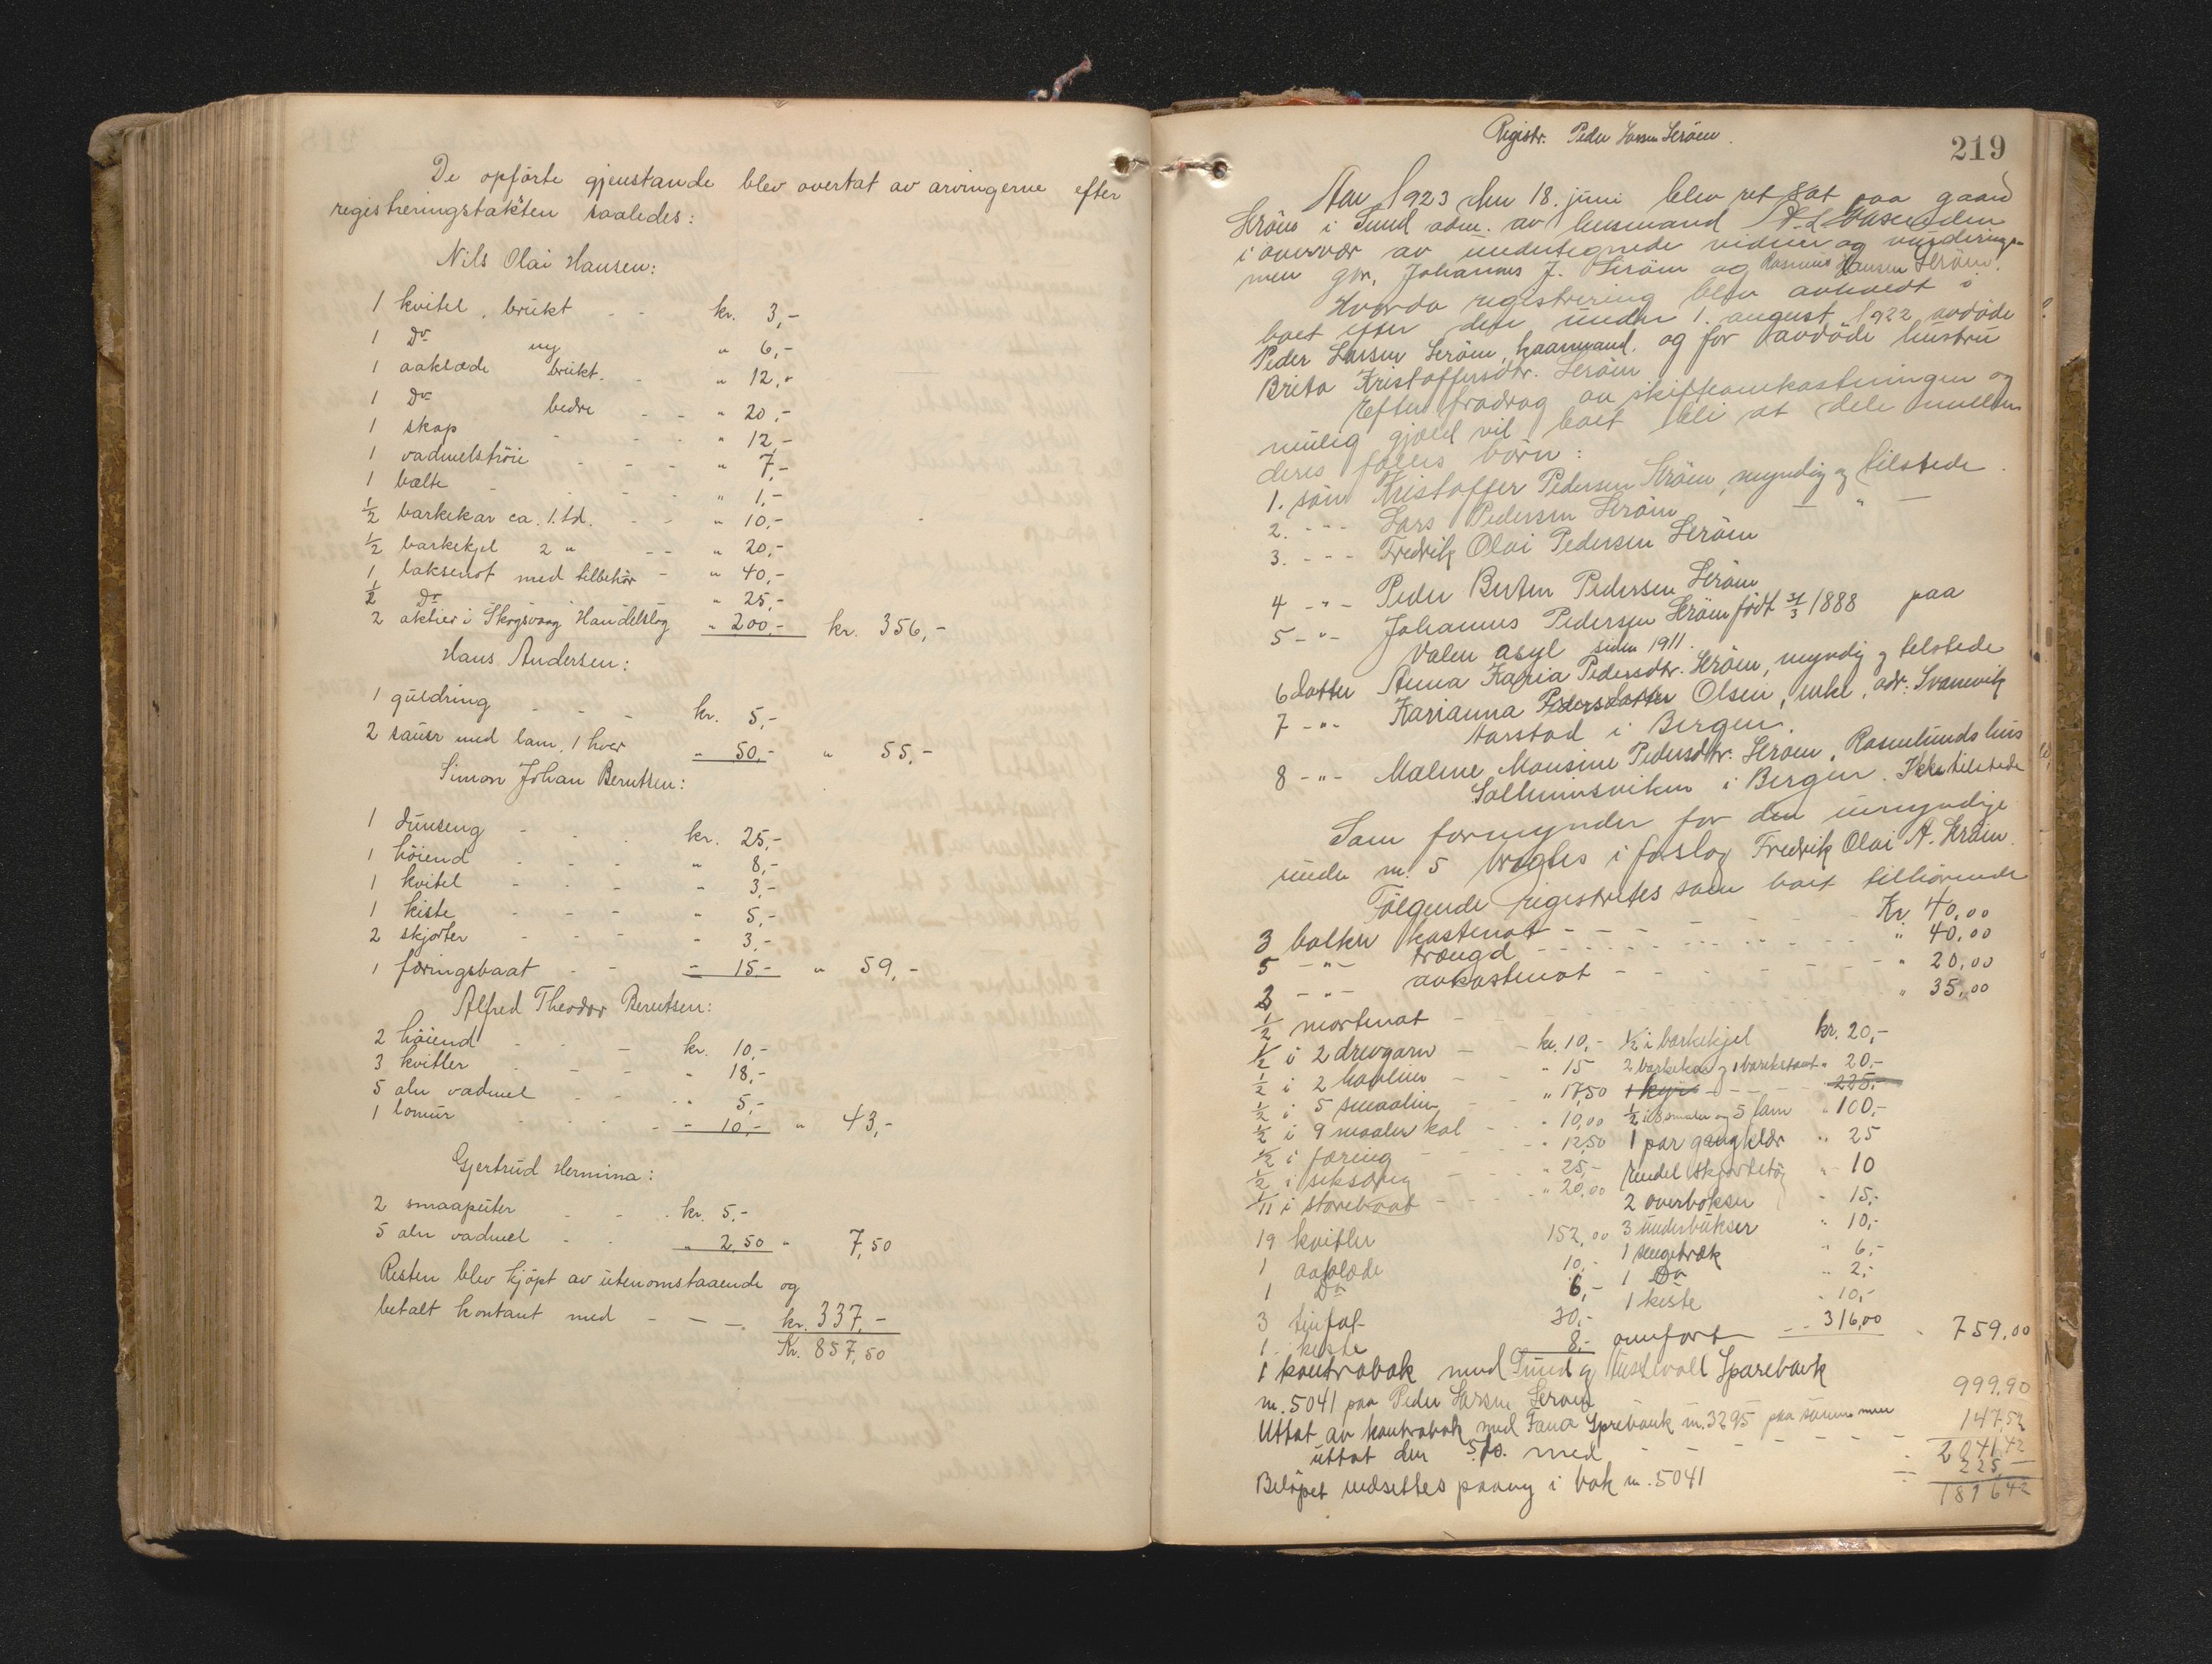 De opførte gjenstande blev overtat av arvingerne efter
registreringstaksten saaledes:
Nils Olai Hansen:
1 kvitel, brukt - - kr. 3,-
1 Do ny " 6,-
1 aaklæde brukt. - " 12,"
1 Do bedre - - " 20,-
1 skap - - - " 12,-
1 vadmelströie - - - " 7,-
1 bælte - - - - " 1,-
1/2 barkekar ca. 1. td. - - " 10,-
1/2 barkekjel 2 " - - " 20,-
1 laksenot med tilbehör - " 40,-
1/2 Do " 25,-
2 aktier i Skogsvaag Handelslag " 200,- kr. 356,-
Hans Andersen:
1 guldring - - - kr. 5,-
2 sauer med lam, 1 hver " 50,- " 55,-
Simon Johan Berntsen:
1 dunseng - - kr. 25,-
1 höiend - - - " 8,-
1 kvitel - - - " 3,-
1 kiste - - - " 5,-
2 skjorter - - - " 3,-
1 færingsbaat - - " 15,- " 59,-
Alfred Theodor Berntsen:
2 höiend - - - kr. 10,-
3 kvitler - - - " 18,-
5 aln vadmel - - " 5,-
1 lomur - - - - " 10,- " 43,-
Gjertrud Hermina:
2 smaaputer - - kr. 5,-
5 aln vadmel - - " 2,50 " 7,50
Resten blev kjöpt av utenomstaaende og
betalt kontant med - - - kr. 337,-
Kr. 857,50
Registr. Peder Larsen Steröen.
219
Aar 1923 den 18. juni blev ret sat paa gaard
i Sund adm. av lensmand
i overvær av undertegnede vidner og vurderings-
men gbr. Johannes J. og Rasmus Hansen
Hvorda registrering blev avholdt i
boet efter den under 1. august 1922 avdöde
Peder Larsen kaarmand. og før avdöde hustru
Brita Kristoffersdtr.
Efter fradrag av skifteomkostningen og
mulig gjæld vil boet bli at dele mellem
deres fælles börn:
1. sön Kristoffer Pedersen myndig og tilstede.
2. - - - Lars Pedersen - " -
3. - - - Fredrik Olai Pedersen
4 - " - Peder Pedersen
5 - " - Johannes Pedersen født 31/3 1888 paa
Valen asyl siden 1911.
6 datter Anna Karia Pedersdtr. myndig og tilstede
7 - " - Karianna Pedersdatter Olsen, enke, adr. Svanevik
Aarstad i Bergen.
8 - " - Malene Monsine Pedersdtr. Rosenlunds hus
Solheimsviken i Bergen. Ikke tilstede
Som formynder for den umyndige
under nr. 5 bragtes i forslag Fredrik Olai
Følgende registrertes som boet tilhörende
3 bolker kastenot - - - - Kr. 40,00
5 - " - trængd - - - - " 40,00
2 - " - avkastenot - - - - " 20,00
1/2 mortenot - - - - " 35,00
1/2 i 2 drivgarn - - kr. 10,- 1/2 i barkekjel kr. 20,-
1/2 i 2 - - " 15 2 barkekar og 1 " 20,-
1/2 i 5 - - " 17,50 1 kyr - - - 225,-
1/2 i 9 maaler kol - - " 10,00 1/2 i 8 smaler og 5 lam " 100,-
1/2 i færing - - - " 12,50 1 par gangklær " 25
1/2 i seksæring - - - " 25,- Endel skjortetöi " 10
1/11 i storebaat - - - " 20,00 2 overbokser " 15,-
19 kvitler 152,00 3 underbukser " 10,-
1 aaklæde 10,- 1 sengetræk " 6,-
1 Do 6,- 1 Do " 2,-
3 tinfat 30,- 1 kiste " 10,-
1 kiste 8,- omfört - - 316,00 " 759,00
1 kontrabok med Sund og Austevoll Sparebank
nr. 5041 paa Peder Larsen 999,90
Uttat av kontrabok med Fana Sprebank nr. 3295 paa samme 147,52
uttat den s.d. med - - - - - 2041,42
225,-
Belöpet indsættes paany i bok nr. 5041 1816,42